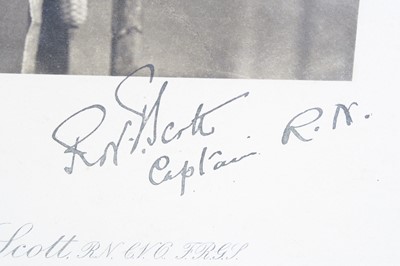 Robt. F. Scott
Captain R.N.
Scott, R.N. C.V.O. F.R.G.S.